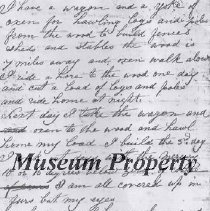 I have a wagon and a yoke of
oxen for hauling logs and poles
from the wood to build fences
sheds and stables the wood is
7 miles away and, oxen walk slow
I ride a horse to the wood one day
and cut a load of logs and poles
and ride home at night.
Next day I take the wagon and
oxen to the wood and haul
home my load I build the 3rd day
Museum Property
I am all covered up in
furs but my eyes